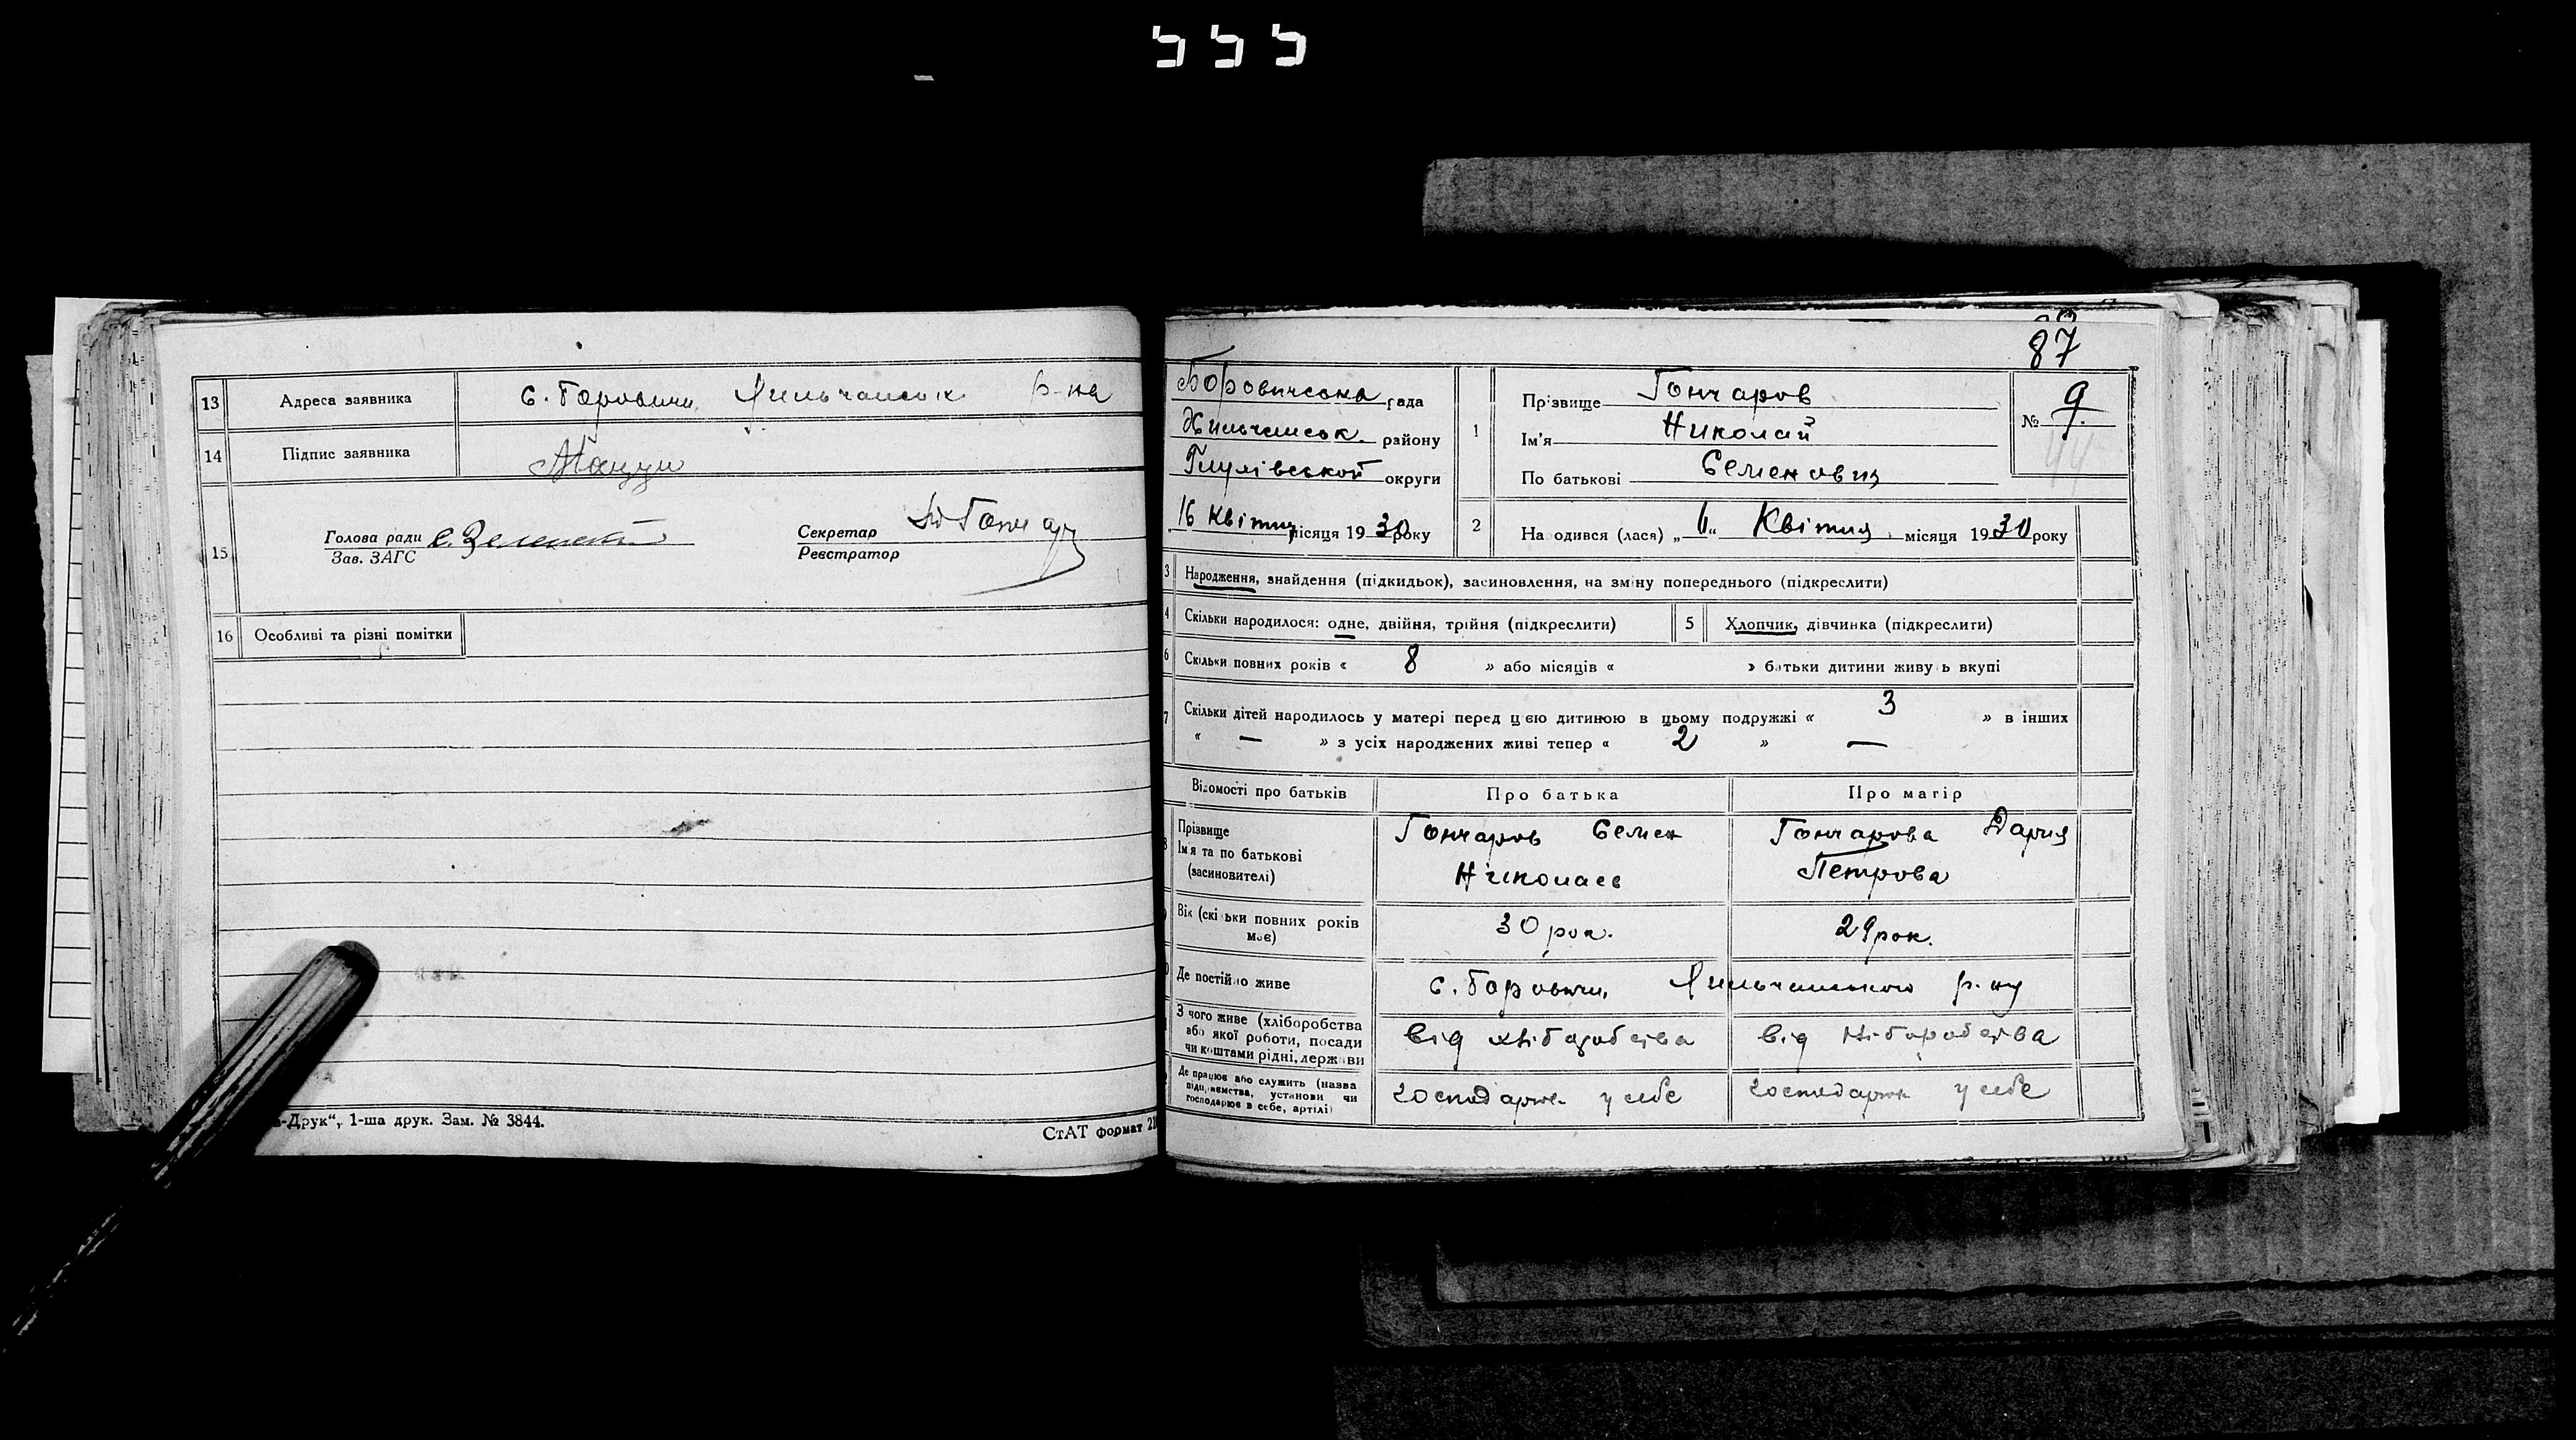 13 Адреса заявника с. Боровичи, Хильчанськ р-на
14 Підпис заявника
15 Голова ради Секретар Гончар
Зав. ЗАГС Реєстратор
16 Особливі та різні помітки
-Друк", 1-ша друк. Зам. № 3844.
СтАТ формат
87
Боровичська рада
Хильчанськ. району
Глухівської округи
16 Квітня місяця 1930 року
1 Прізвище Гончаров
Ім'я Николай
По батькові Семенович
№ 9
2 Народився (лася) „ “ Квітня місяця 1930 року
3 Народження, знайдення (підкидьок), засиновлення, на зміну попереднього (підкреслити)
4 Скільки народилося: одне, двійня, трійня (підкреслити)
5 Хлопчик, дівчинка (підкреслити)
6 Скільки повних років « 8 » або місяців « » батьки дитини живуть вкупі
7 Скільки дітей народилось у матері перед цією дитиною в цьому подружжі « 3 » в інших
« — » з усіх народжених живі тепер « 2 » —
Відомості про батьків Про батька Про матір
8 Прізвище
Ім'я та по батькові
(засиновителі)
Гончаров Семен
Николаев
Гончарова Дария
Петрова
Вік (скільки повних років
має)
30 рок.
29 рок.
Де постійно живе с. Боровичи, Хильчанського р-ну
З чого живе (хліборобства
або якої роботи, посади
чи коштами рідні, держави
від хліборобства
від хліборобства
Де працює або служить (назва
підприємства, установи чи
господарює в себе, артілі)
господарює у себе
господарює у себе